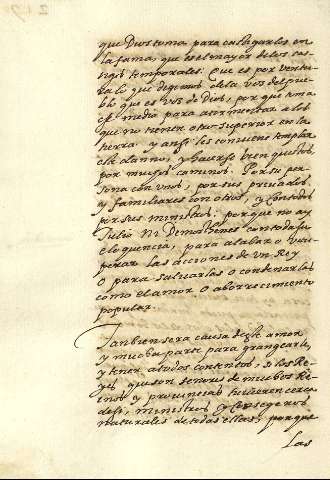 que Dios toma para castigarlos en
la fama, que es el mayor de los cas-
tigos temporales: Que es por ventu-
ra lo que decimos de la voz del pue-
blo que es voz de Dios, porque toma
este medio para atormentar a los
que no tienen otro superior en la
tierra. y ansi les conviene templar
el daño, y hacerse bien quistos
por muchos caminos. Por su per-
sona con unos, por sus privados
y familiares con otros, y con todos
por sus ministros: porque no ay
Tulio ni Demosthenes con toda su
eloquencia, para alabar o vitu-
perar las acciones de un Rey
o para salvarlas o condenarlas
como el amor o aborrecimiento
popular.
Tanbien sera causa deste amor
y mucha parte para grangearle,
y tener a todos contentos, si los Re-
yes que son señores de muchos Rei-
nos y provincias tuvieren cerca
de si, ministros y consegeros
naturales de todas ellas, porque
las